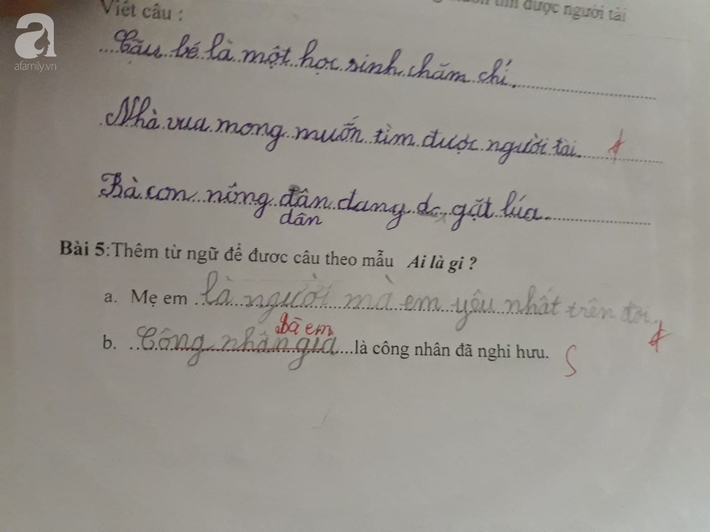 a
afamily.vn
tìm được người tài
Viết câu :
Cậu bé là một học sinh chăm chỉ.
Nhà vua mong muốn tìm được người tài.
Bà con nông dân đang gặt lúa.
dân
Bài 5:Thêm từ ngữ để được câu theo mẫu Ai là gì ?
a. Mẹ em là người mà em yêu nhất trên đời
Bà em
b. Công nhân già là công nhân đã nghỉ hưu.
S